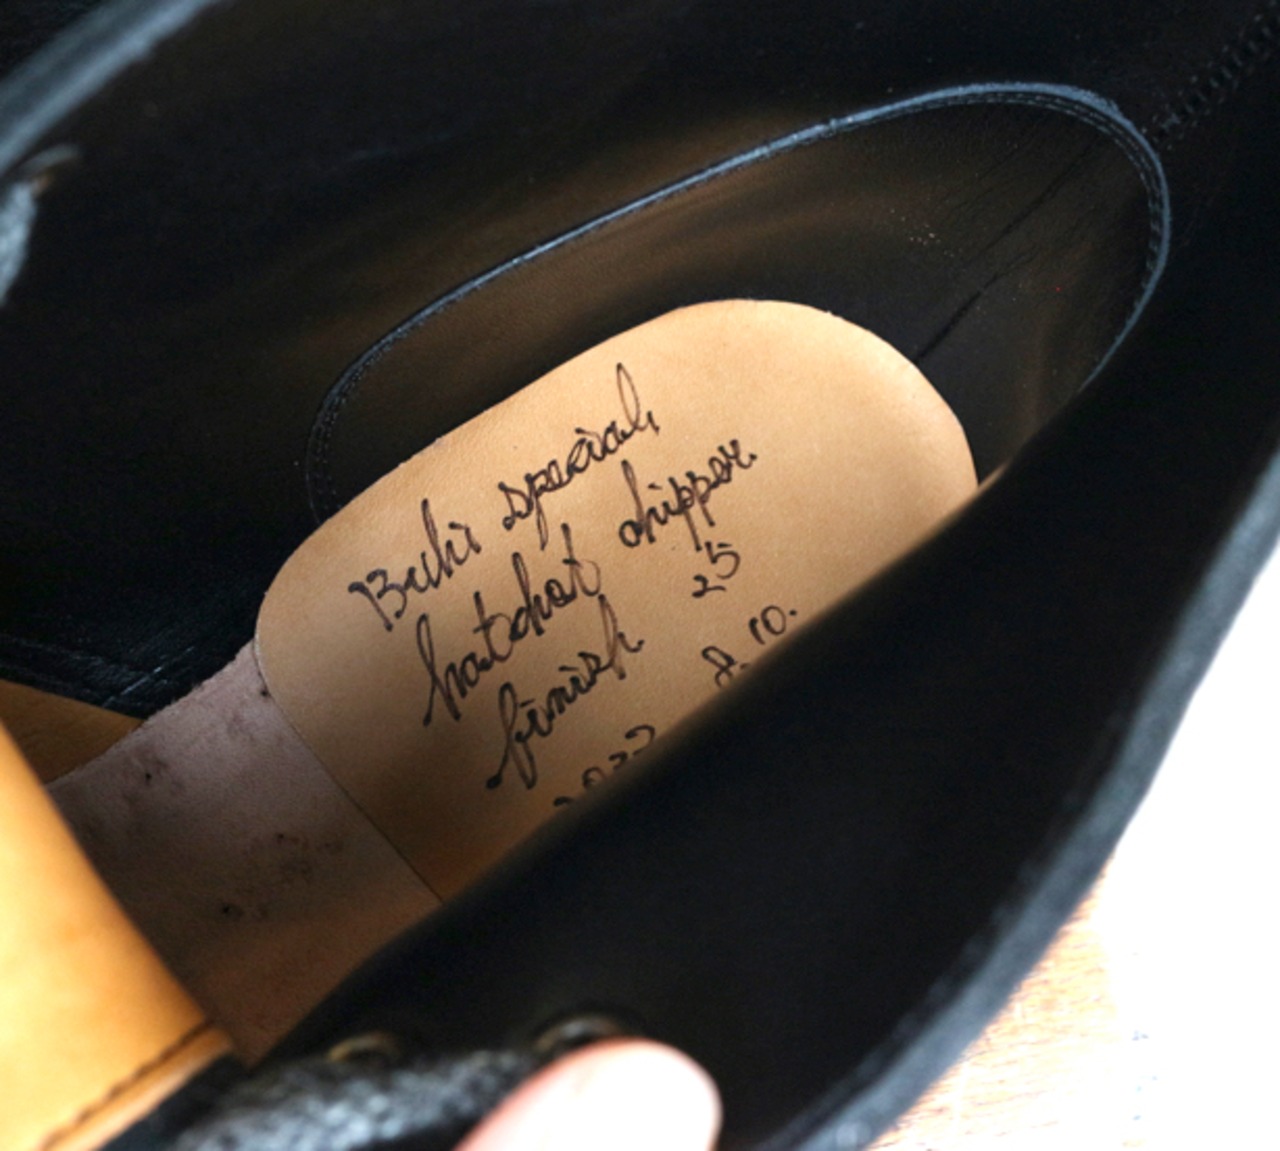 Buhi special,
hatchet chipper.
finish 25
8.10.